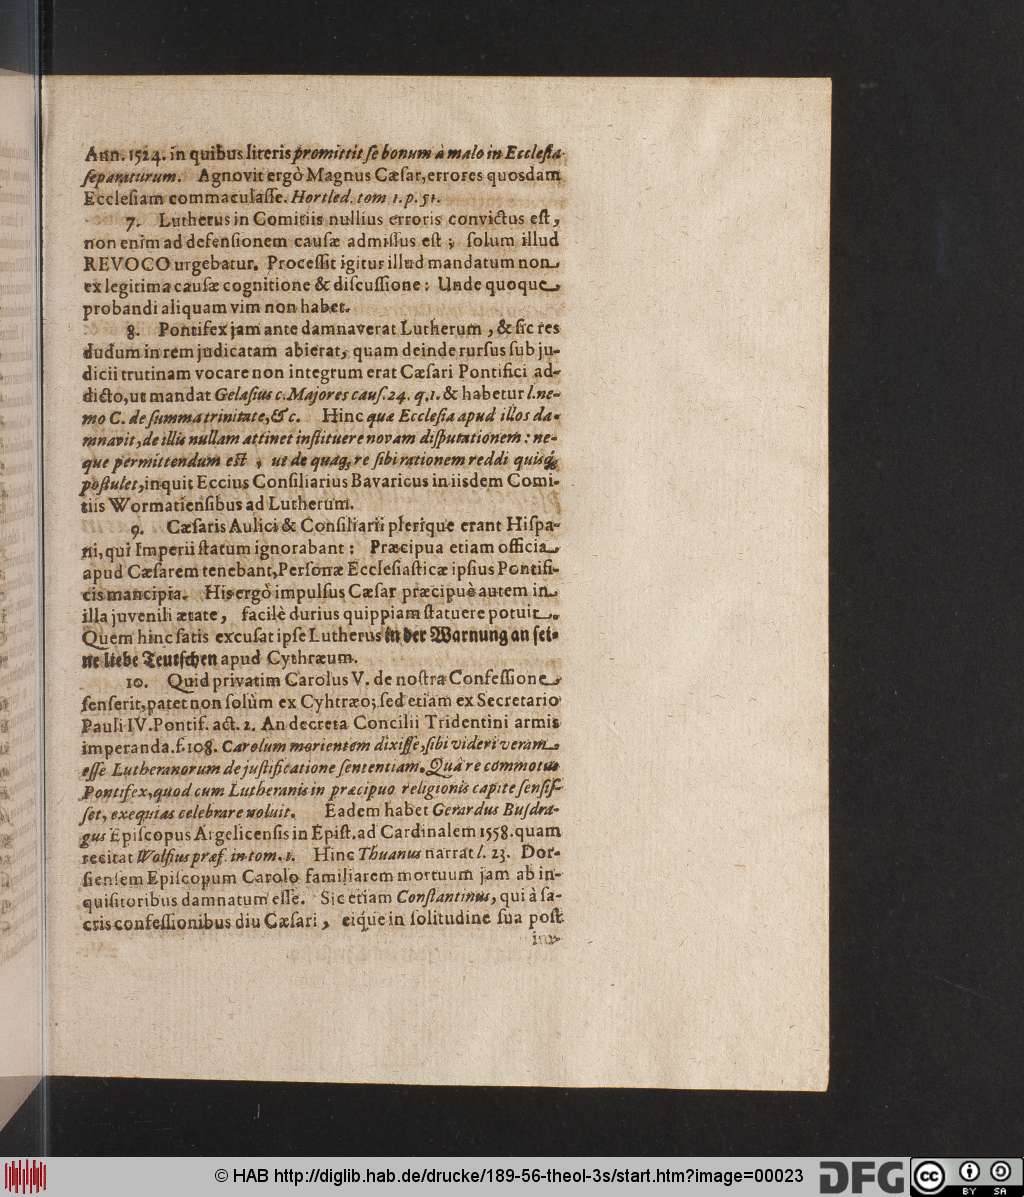 Ann. 1524. in quibus literis promittit se bonum à malo in Ecclesia
separaturum. Agnovit ergò Magnus Cæsar, errores quosdam
Ecclesiam commaculasse. Hortled. tom 1. p. 51.
7. Lutherus in Comitiis nullius erroris convictus est,
non enim ad defensionem causæ admissus est; solum illud
REVOCO urgebatur. Processit igitur illud mandatum non
ex legitima causæ cognitione & discussione: Unde quoque
probandi aliquam vim non habet.
8. Pontifex jam ante damnaverat Lutherum, & sic res
dudum in rem judicatam abierat, quam deinde rursus sub ju-
dicii trutinam vocare non integrum erat Cæsari Pontifici ad-
dicto, ut mandat Gelasius c. Majores caus. 24. q. 1. & habetur l. ne-
mo C. de summa trinitate, &c. Hinc quæ Ecclesia apud illos da-
mnavit, de illis nullam attinet instituere novam disputationem: ne-
que permittendum est, ut de quaq; re sibi rationem reddi quisq;
postulet, inquit Eccius Consiliarius Bavaricus in iisdem Comi-
tiis Wormatiensibus ad Lutherum.
9. Cæsaris Aulici & Consiliarii plerique erant Hispa-
ni, qui Imperii statum ignorabant: Præcipua etiam officia
apud Cæsarem tenebant, Personæ Ecclesiasticæ ipsius Pontifi-
cis mancipia. His ergò impulsus Cæsar præcipuè autem in
illa juvenili ætate, facilè durius quippiam statuere potuit.
Quem hinc satis excusat ipse Lutherus in der Warnung an sei-
ne liebe Teutschen apud Cythræum.
10. Quid privatim Carolus V. de nostra Confessione
senserit, patet non solùm ex Cyhtræo; sed etiam ex Secretario
Pauli IV. Pontif. act. 2. An decreta Concilii Tridentini armis
imperanda. f. 108. Carolum morientem dixisse, sibi videri veram
esse Lutheranorum de justificatione sententiam. Quâ re commotus
Pontifex, quod cum Lutheranis in præcipuo religionis capite sensis-
set, exequias celebrare noluit. Eadem habet Gerardus Busdra-
gus Episcopus Argelicensis in Epist. ad Cardinalem 1558. quam
recitat Wolfius præf. in tom. 1. Hinc Thuanus narrat l. 23. Dor-
siensem Episcopum Carolo familiarem mortuum jam ab in-
quisitoribus damnatum esse. Sic etiam Constantinus, qui à sa-
cris confessionibus diu Cæsari, eique in solitudine sua post
in-
© HAB http://diglib.hab.de/drucke/189-56-theol-3s/start.htm?image=00023
DFG
cc
BY SA